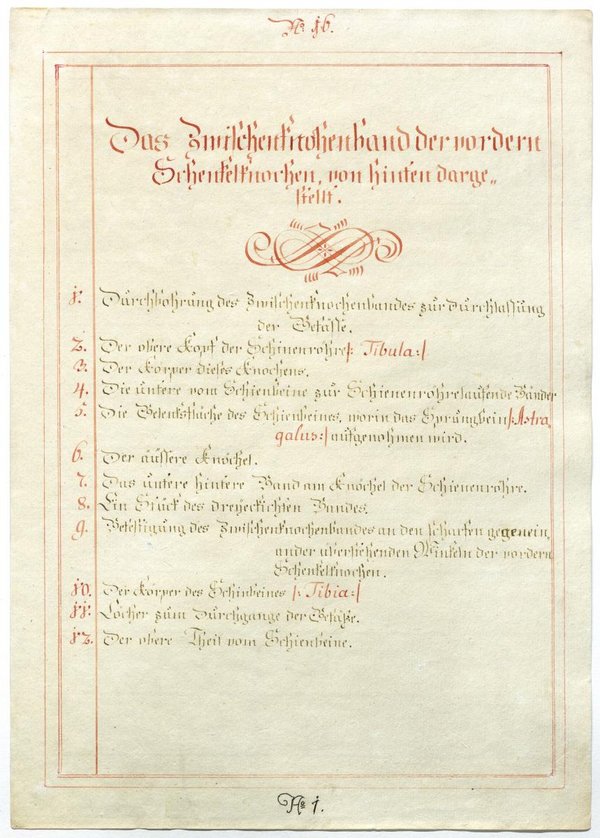 No 16.
Das Zwischenknochenband der vordern
Schenkelknochen, von hinten darge„
stellt.
1. Durchbohrung des Zwischenknochenbandes zur Durchlassung
der Gefässe.
2. Der obere Kopf der Schinenröhre |: Tibula: |
3. Der Körper dieses Knochens.
4. Die untere vom Schienbeine zur Schienenröhre laufende Bänder
5. Die Gelenksfläche des Schienbeines, worin das Sprungbein |: Astra
galus: | aufgenommen wird.
6. Der äussere Knöchel.
7. Das untere hintere Band am Knöchel der Schienenröhre.
8. Ein Stück des dreyeckichten Bandes.
9. Befestigung des Zwischenknochenbandes an den scharfen gegenein„
ander überstehenden Winkeln der vordern
Schenkelknochen.
10. Der Körper des Schinbeines |: Tibia: |
11. Löcher zum Durchgange der Gefäße.
12. Der obere Theil vom Schienbeine.
No 1.